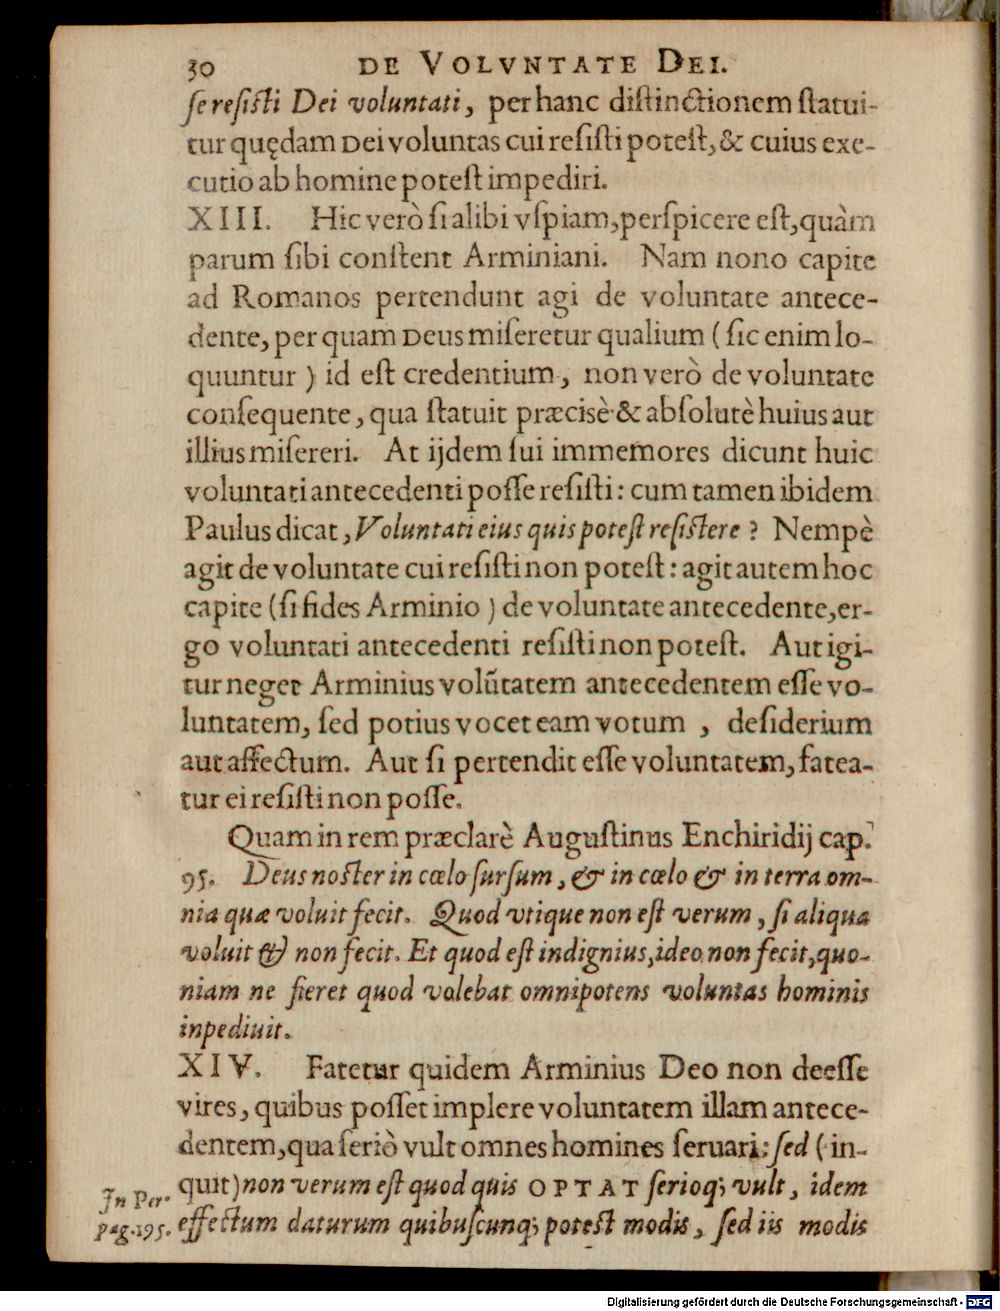 30 DE VOLVNTATE DEI.
se resisti Dei voluntati, per hanc distinctionem statui-
tur quędam Dei voluntas cui resisti potest, & cuius exe-
cutio ab homine potest impediri.
XIII. Hic verò si alibi vspiam, perspicere est, quàm
parum sibi constent Arminiani. Nam nono capite
ad Romanos pertendunt agi de voluntate antece-
dente, per quam Deus miseretur qualium ( sic enim lo-
quuntur ) id est credentium, non verò de voluntate
consequente, qua statuit præcisè & absolutè huius aut
illius misereri. At ijdem sui immemores dicunt huic
voluntati antecedenti posse resisti: cum tamen ibidem
Paulus dicat, Voluntati eius quis potest resistere? Nempè
agit de voluntate cui resisti non potest: agit autem hoc
capite (si fides Arminio ) de voluntate antecedente, er-
go voluntati antecedenti resisti non potest. Aut igi-
tur neget Arminius volũtatem antecedentem esse vo-
luntatem, sed potius vocet eam votum , desiderium
aut affectum. Aut si pertendit esse voluntatem, fatea-
tur ei resisti non posse.
Quam in rem præclarè Augustinus Enchiridij cap.
95. Deus noster in cœlo sursum, & in cœlo & in terra om-
nia quæ voluit fecit. Quod vtique non est verum, si aliqua
voluit & non fecit. Et quod est indignius, ideo non fecit, quo-
niam ne fieret quod volebat omnipotens voluntas hominis
inpediuit.
XIV. Fatetur quidem Arminius Deo non deesse
vires, quibus posset implere voluntatem illam antece-
dentem, qua seriò vult omnes homines seruari: sed ( in-
quit) non verum est quod quis OPTAT serioq; vult, idem
effectum daturum quibuscunq; potest modis, sed iis modis
In Per.
pag. 195.
Digitalisierung gefördert durch die Deutsche Forschungsgemeinschaft - DFG